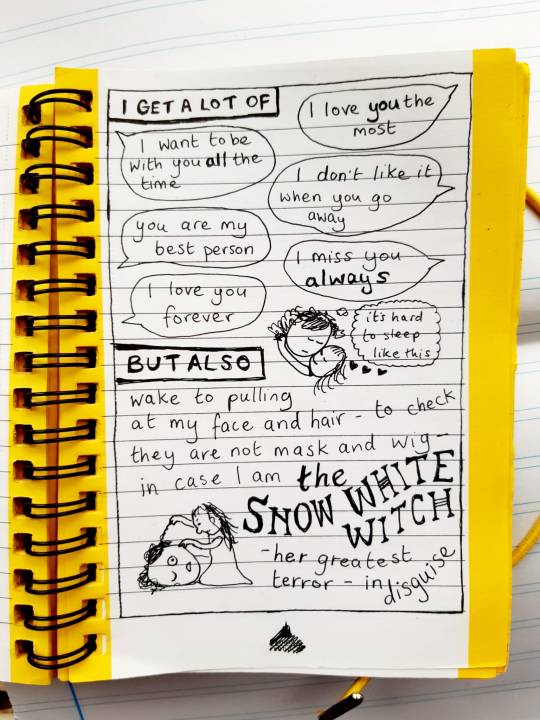 I GET A LOT OF
I love you the
most
I want to be
with you all the
time
I don't like it
when you go
away
you are my
best person
I miss you
always
I love you
forever
it's hard
to sleep
like this
BUT ALSO
wake to pulling
at my face and hair - to check
they are not mask and wig -
in case I am the
SNOW WHITE
WITCH
- her greatest
terror - in disguise